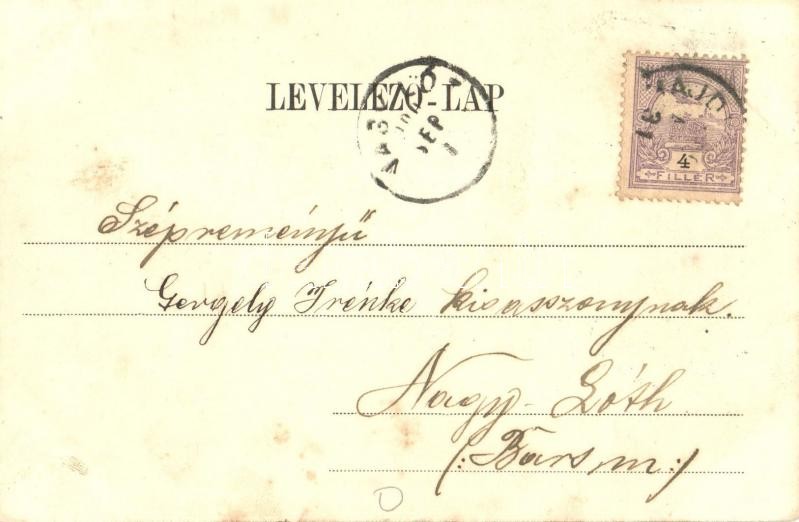 LEVELEZŐ-LAP
4
FILLÉR
Szépreményű
Gergely Irénke kisasszonynak.
Nagy-Lóth
(: Bars m :)